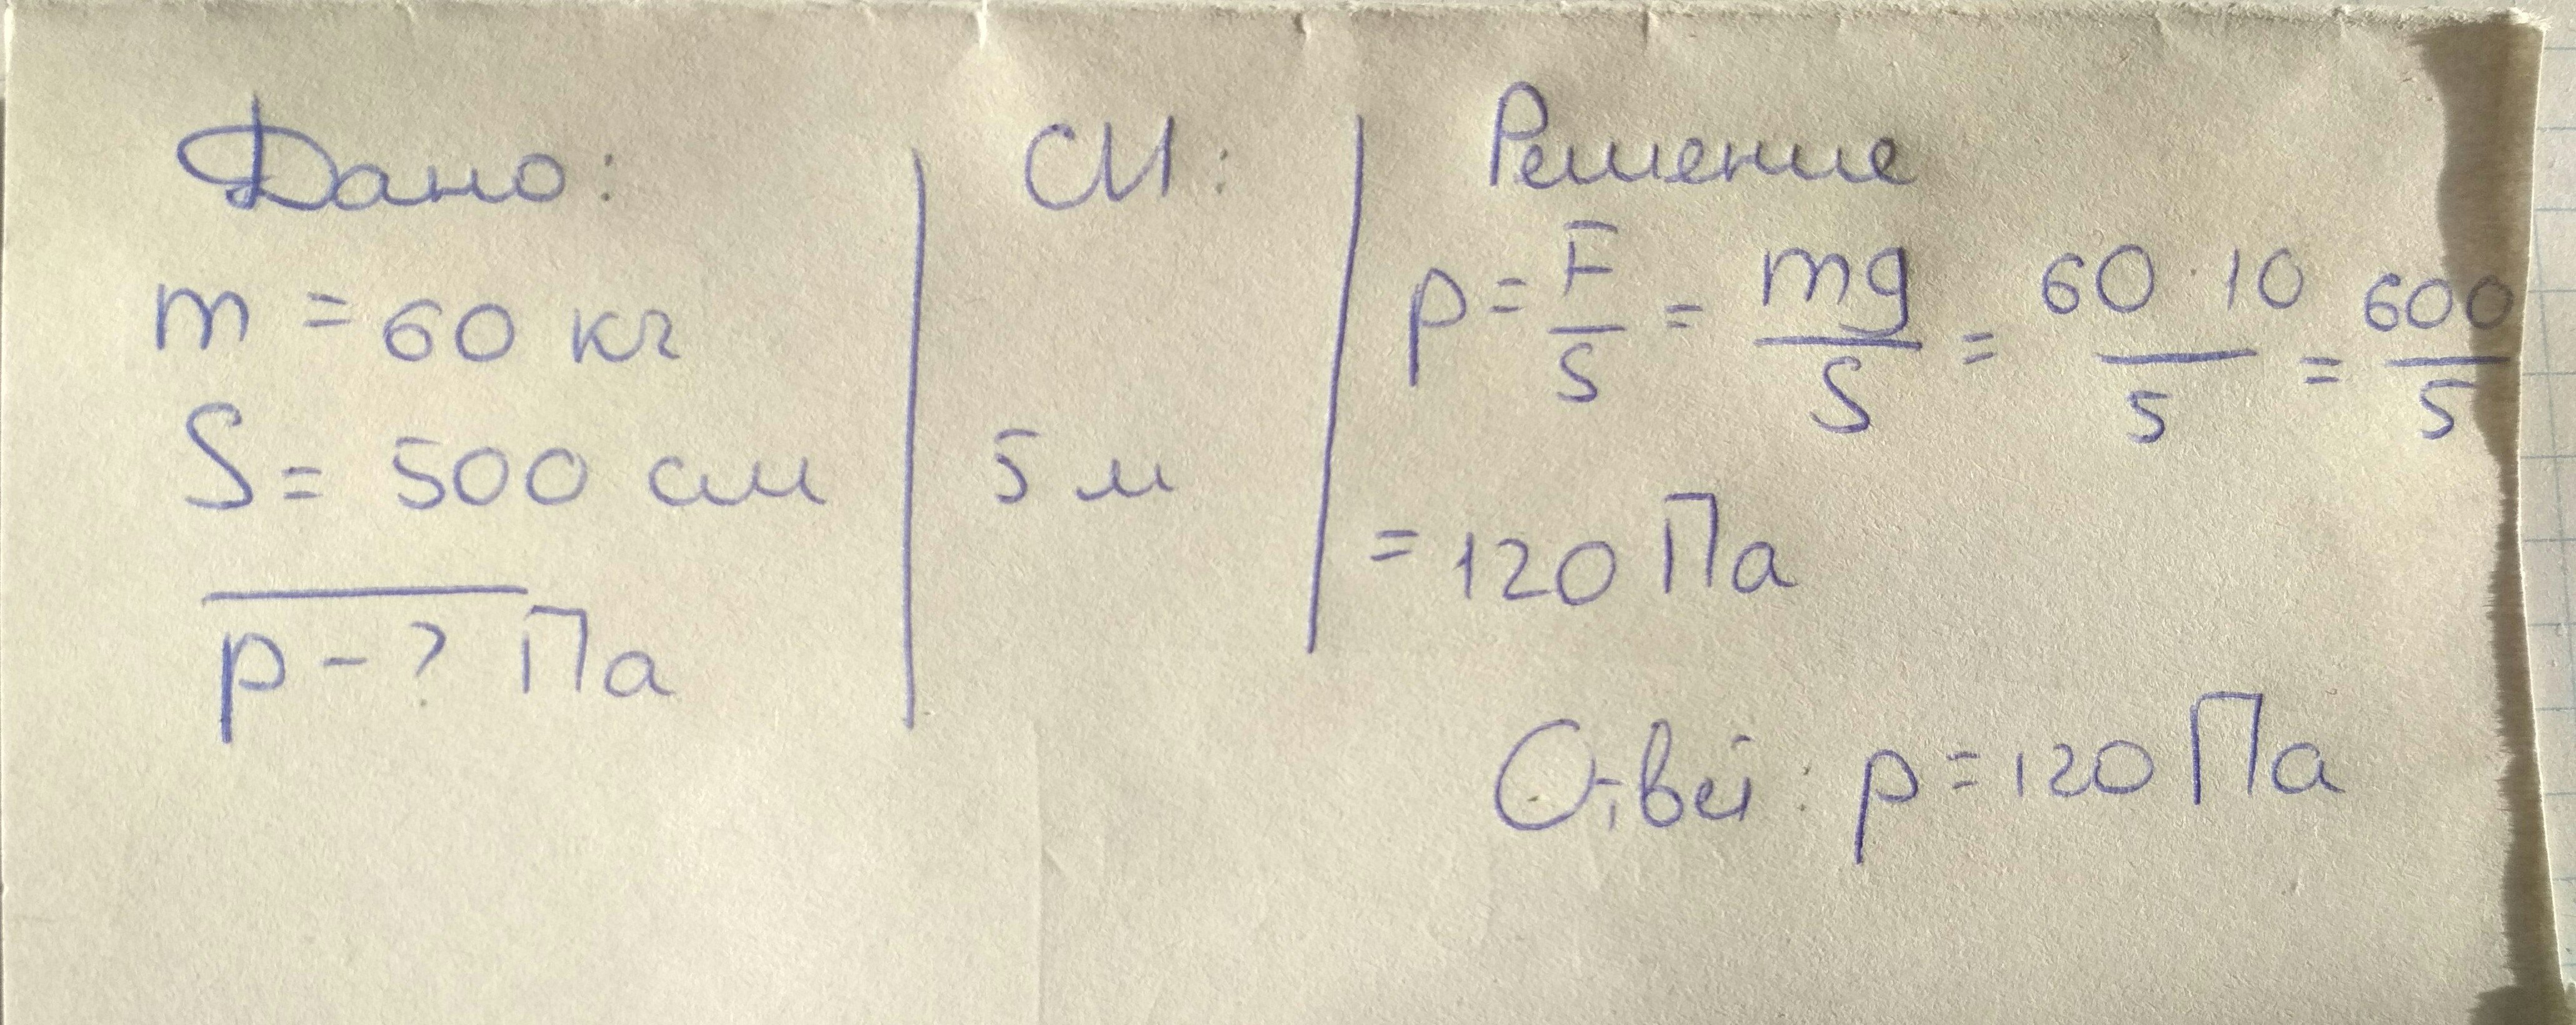 Дано:
m = 60 кг
S = 500 см
p - ? Па
СИ:
5 м
Решение
p = F/S = mg/S = 60 · 10/5 = 600/5
= 120 Па
Ответ: p = 120 Па